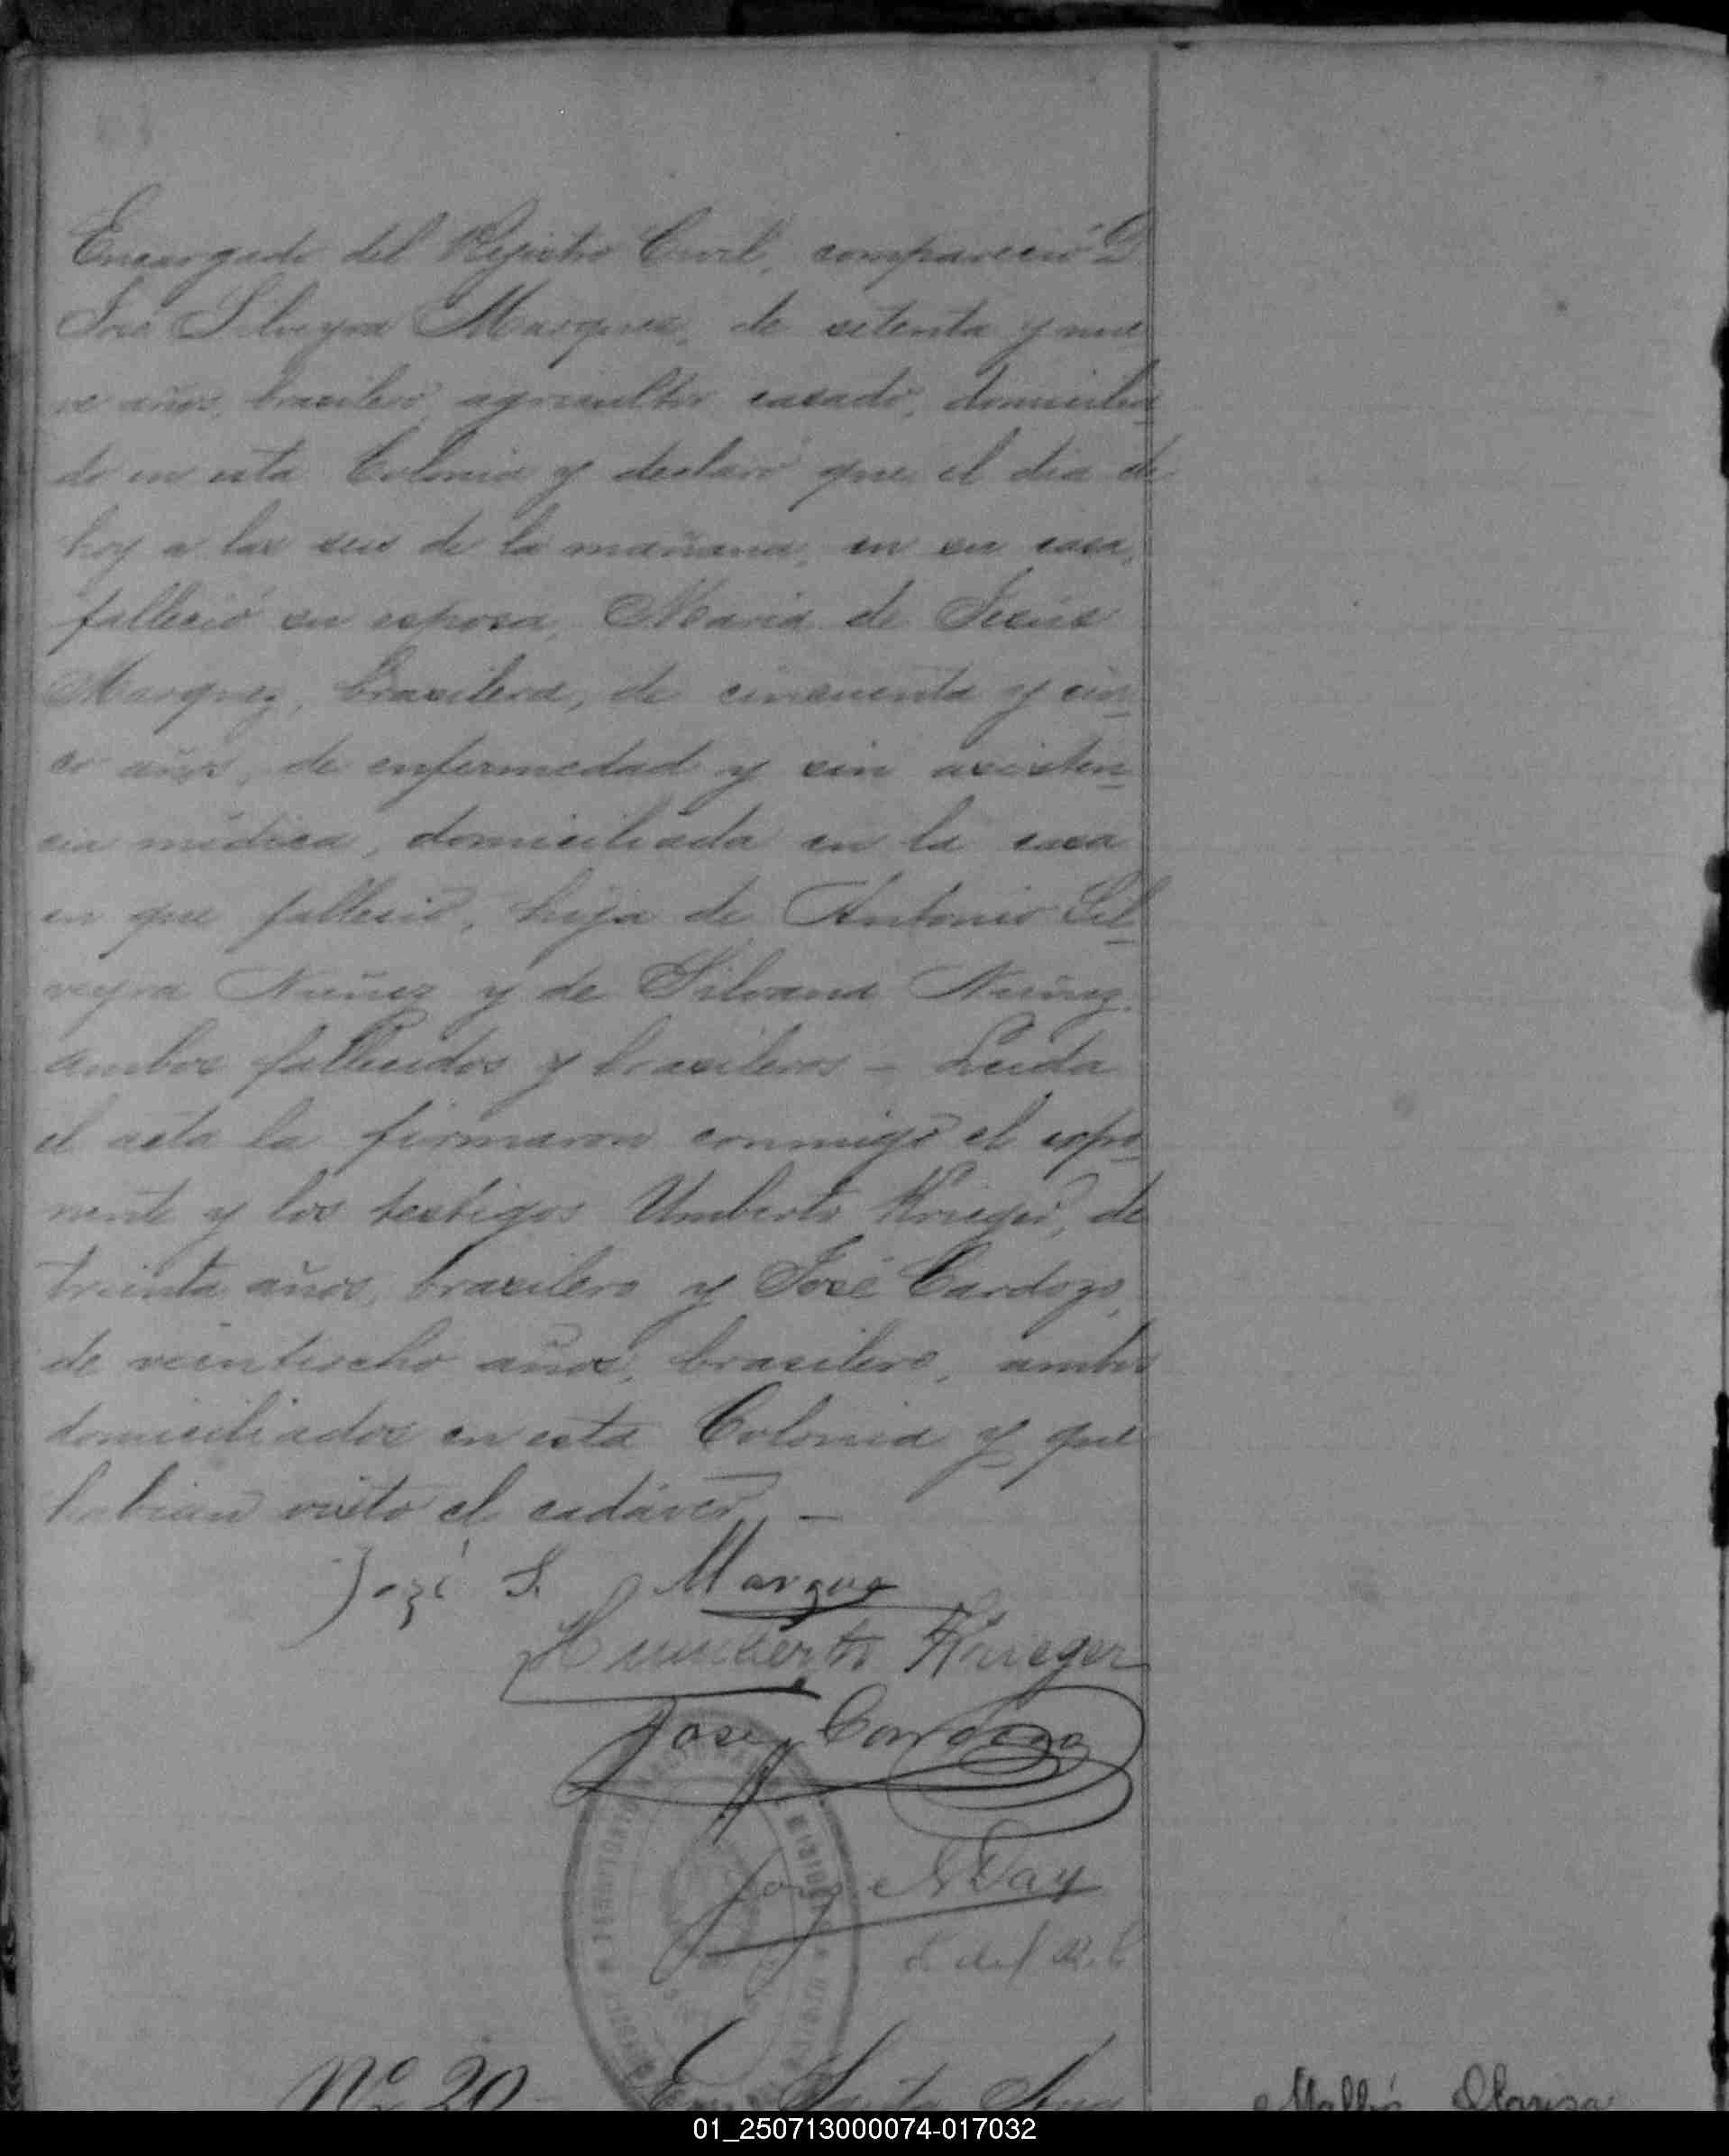 Encargado del Rejistro Civil, compareció D
José Silveyra Marques, de setenta y nue
ve años, brasilero, agricultor casado, domicilia
do en esta Colonia y declaró que el dia de
hoy a las seis de la mañana, en su casa,
falleció su esposa, Maria de Jesús
Marquez, brasilera, de cincuenta y cin
co años, de enfermedad y sin asisten
cia médica, domiciliada en la casa
en que falleció, hija de Antonio Sil
veyra Nuñez y de Silvana Nuñez,
ambos fallecidos y brasileros - Leida
el acta la firmaron conmigo el expo
nente y los testigos Umberto Krieger, de
treinta años, brasilero y José Cardozo,
de veintiocho años, brasilero, ambos
domiciliados en esta Colonia y que
habian visto el cadáver. -
Jozé S. Marques
Humberto Krieger
Jose Cardozo
Jorge N Day
E del R. C
TERRITORIO NACIONAL DE MISIONES
Nº 20 - En Santa Ana
Marisa
01_250713000074-017032